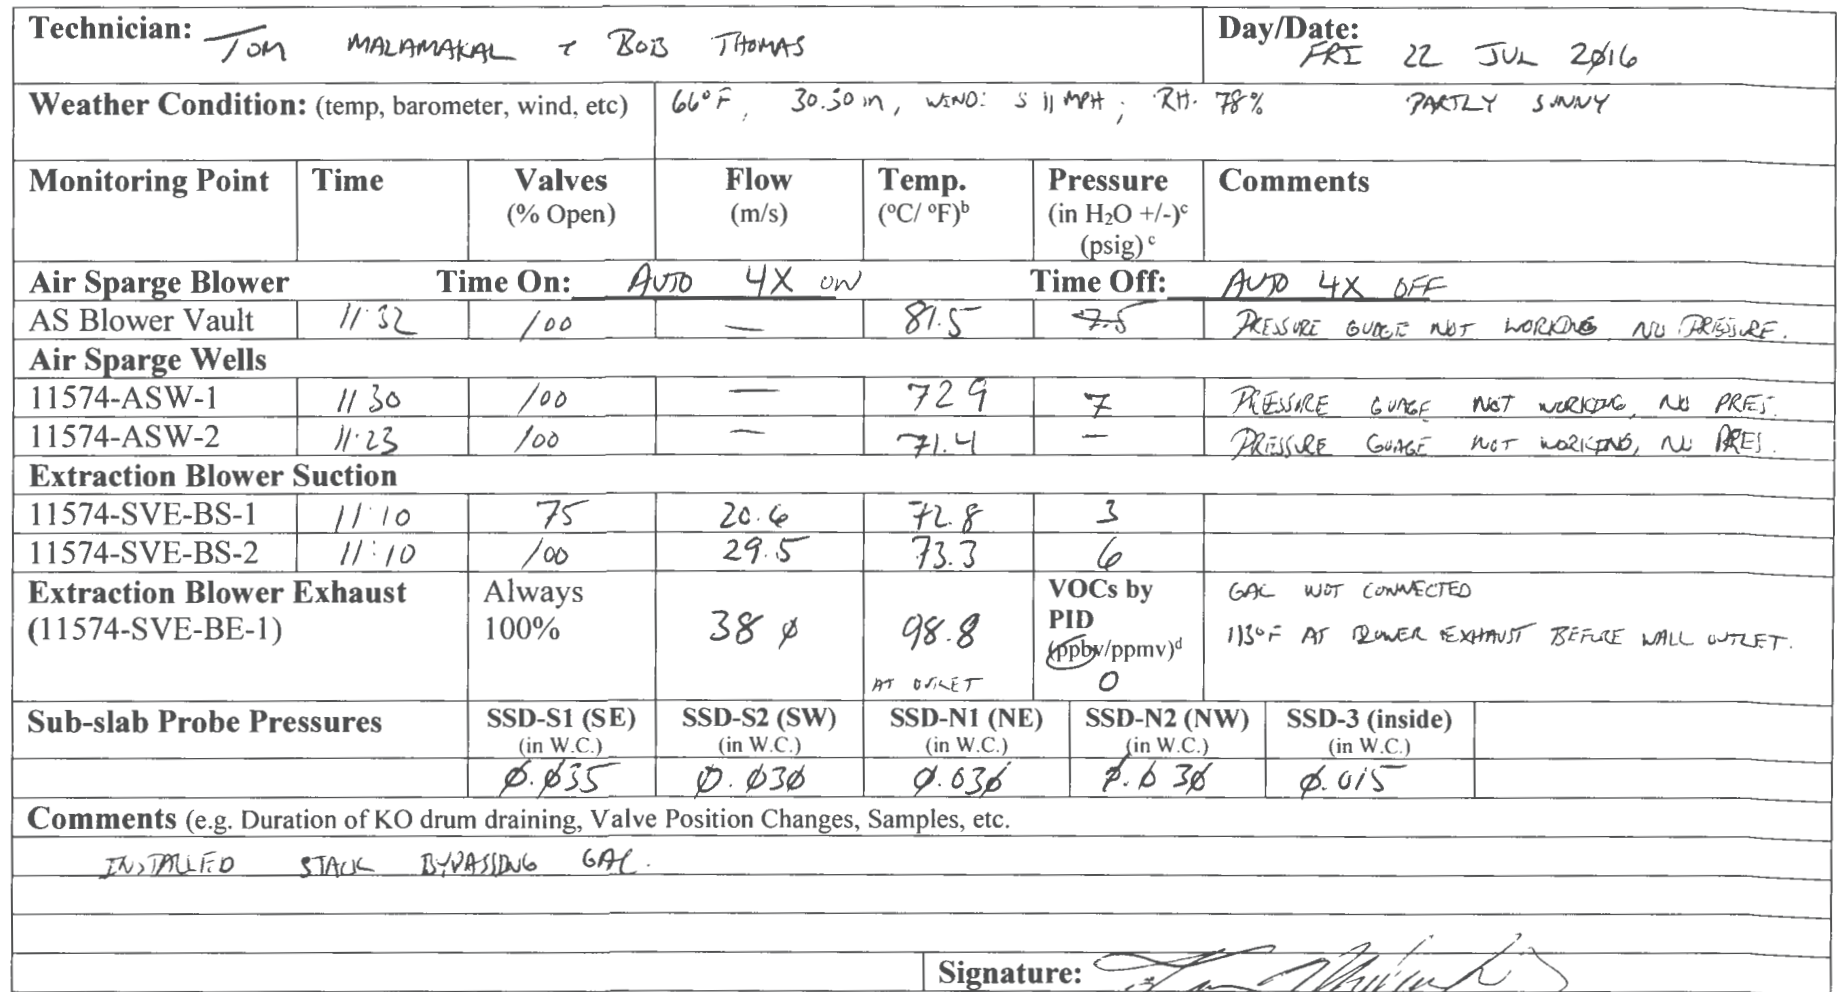 Technician: TOM MALAMAKAL + BOB THOMAS Day/Date: FRI 22 JUL 2016
Weather Condition: (temp, barometer, wind, etc) 66°F, 30.30 in, WIND: S 11 MPH; RH. 78% PARTLY SUNNY
Monitoring Point Time Valves Flow Temp. Pressure Comments
(% Open) (m/s) (°C/ °F)b (in H2O +/-)c
(psig) c
Air Sparge Blower Time On: AUTO 4X ON Time Off: AUTO 4X OFF
AS Blower Vault 11:32 100 — 81.5 7.5 PRESSURE GUAGE NOT WORKING NO PRESSURE.
Air Sparge Wells
11574-ASW-1 11 30 100 — 72 9 7 PRESSURE GUAGE NOT WORKING, NO PRES.
11574-ASW-2 11:23 100 — 71.4 — PRESSURE GUAGE NOT WORKING, NO PRES.
Extraction Blower Suction
11574-SVE-BS-1 11:10 75 20.6 72.8 3
11574-SVE-BS-2 11:10 100 29.5 73.3 6
Extraction Blower Exhaust Always VOCs by GAC NOT CONNECTED
(11574-SVE-BE-1) 100% 38 0 98.8 PID 113°F AT BLOWER EXHAUST BEFORE WALL OUTLET.
(ppbv/ppmv)d
AT OUTLET 0
Sub-slab Probe Pressures SSD-S1 (SE) SSD-S2 (SW) SSD-N1 (NE) SSD-N2 (NW) SSD-3 (inside)
(in W.C.) (in W.C.) (in W.C.) (in W.C.) (in W.C.)
0.035 0.030 0.030 0.030 0.015
Comments (e.g. Duration of KO drum draining, Valve Position Changes, Samples, etc.
INSTALLED STACK BYPASSING GAC.
Signature: